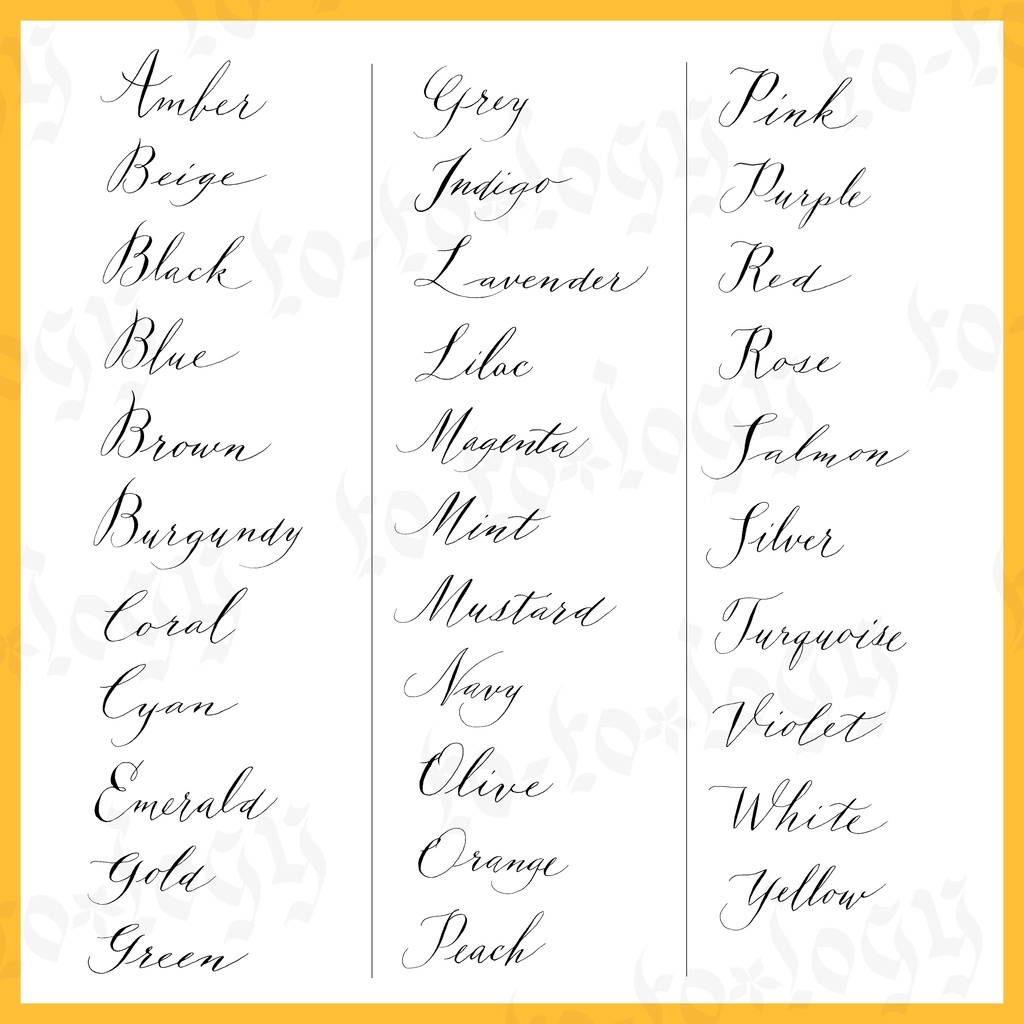 Amber
Beige
Black
Blue
Brown
Burgundy
Coral
Cyan
Emerald
Gold
Green
Grey
Indigo
Lavender
Lilac
Magenta
Mint
Mustard
Navy
Olive
Orange
Peach
Pink
Purple
Red
Rose
Salmon
Silver
Turquoise
Violet
White
Yellow